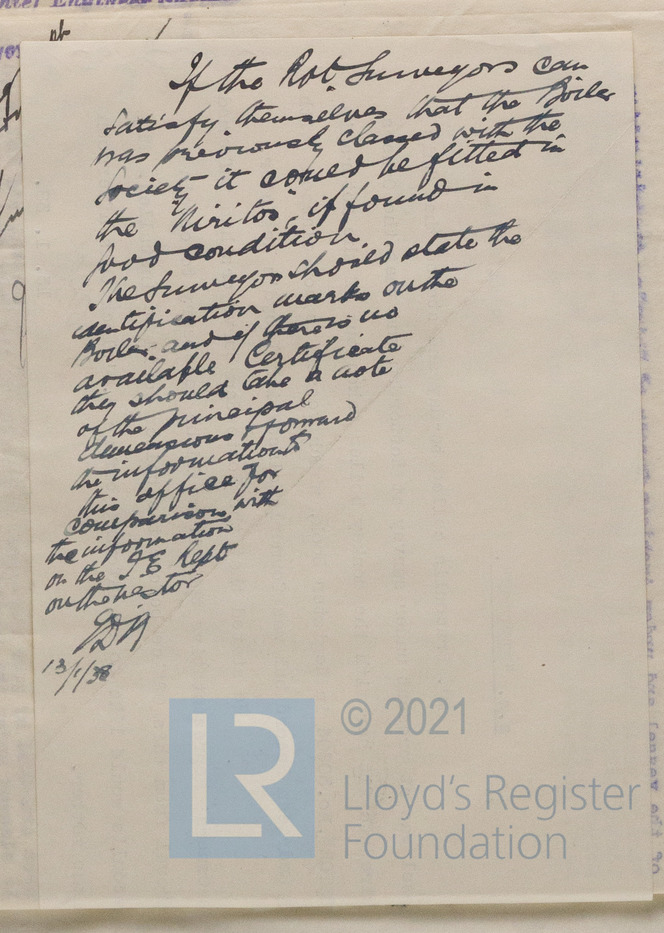 If the Rot. Surveyors can
satisfy themselves that the Boiler
was previously classed with the
Society it could be fitted in
the "Niritos", if found in
good condition.
The Surveyors should state the
identification marks on the
Boiler, and if there is no
available Certificate
they should take a note
of the principal
dimensions & forward
the information to
this office for
comparison with
the information
on the F.E. Rept
on the
13/1/38
© 2021
LR
Lloyd's Register
Foundation